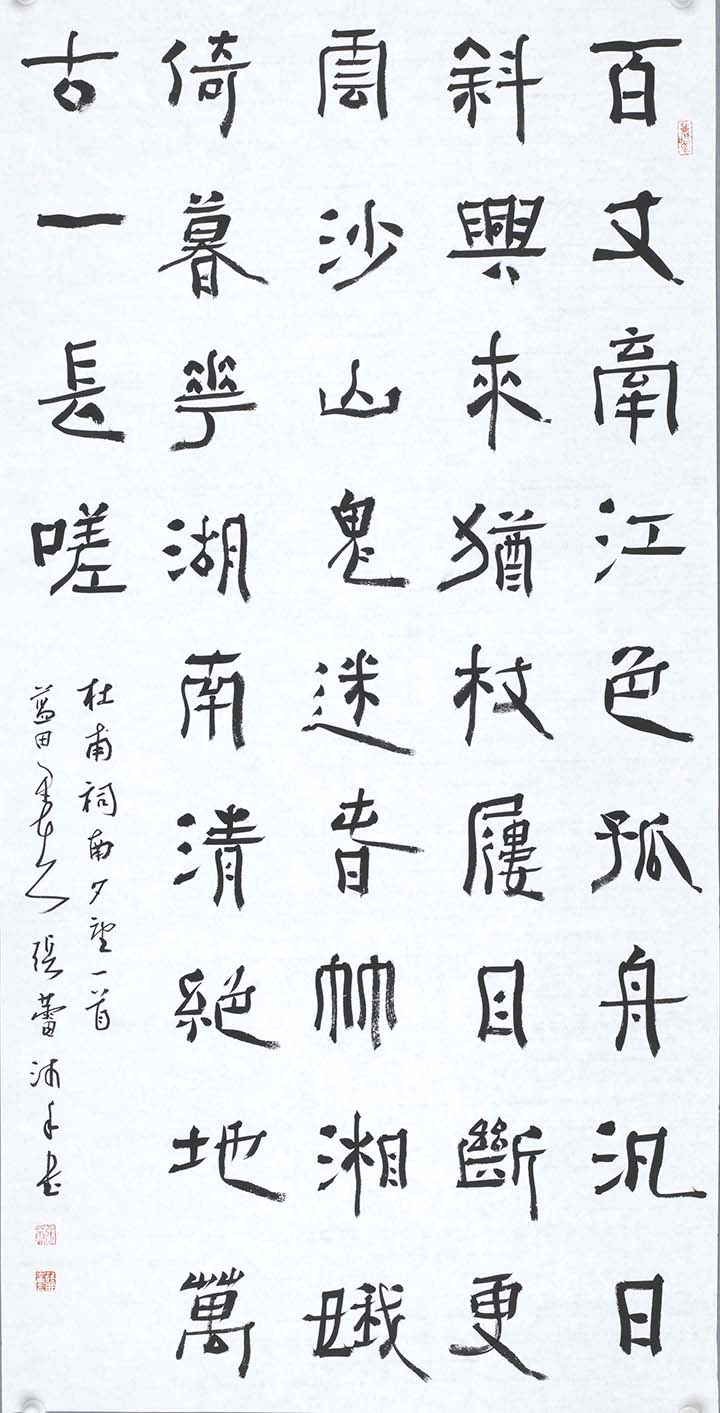 百丈牽江色孤舟汎日
斜興來猶杖屨目斷更
雲沙山鬼迷春竹湘娥
倚暮華湖南清絕地萬
古一長嗟
杜甫祠南夕望一首
田張蕾沐手書